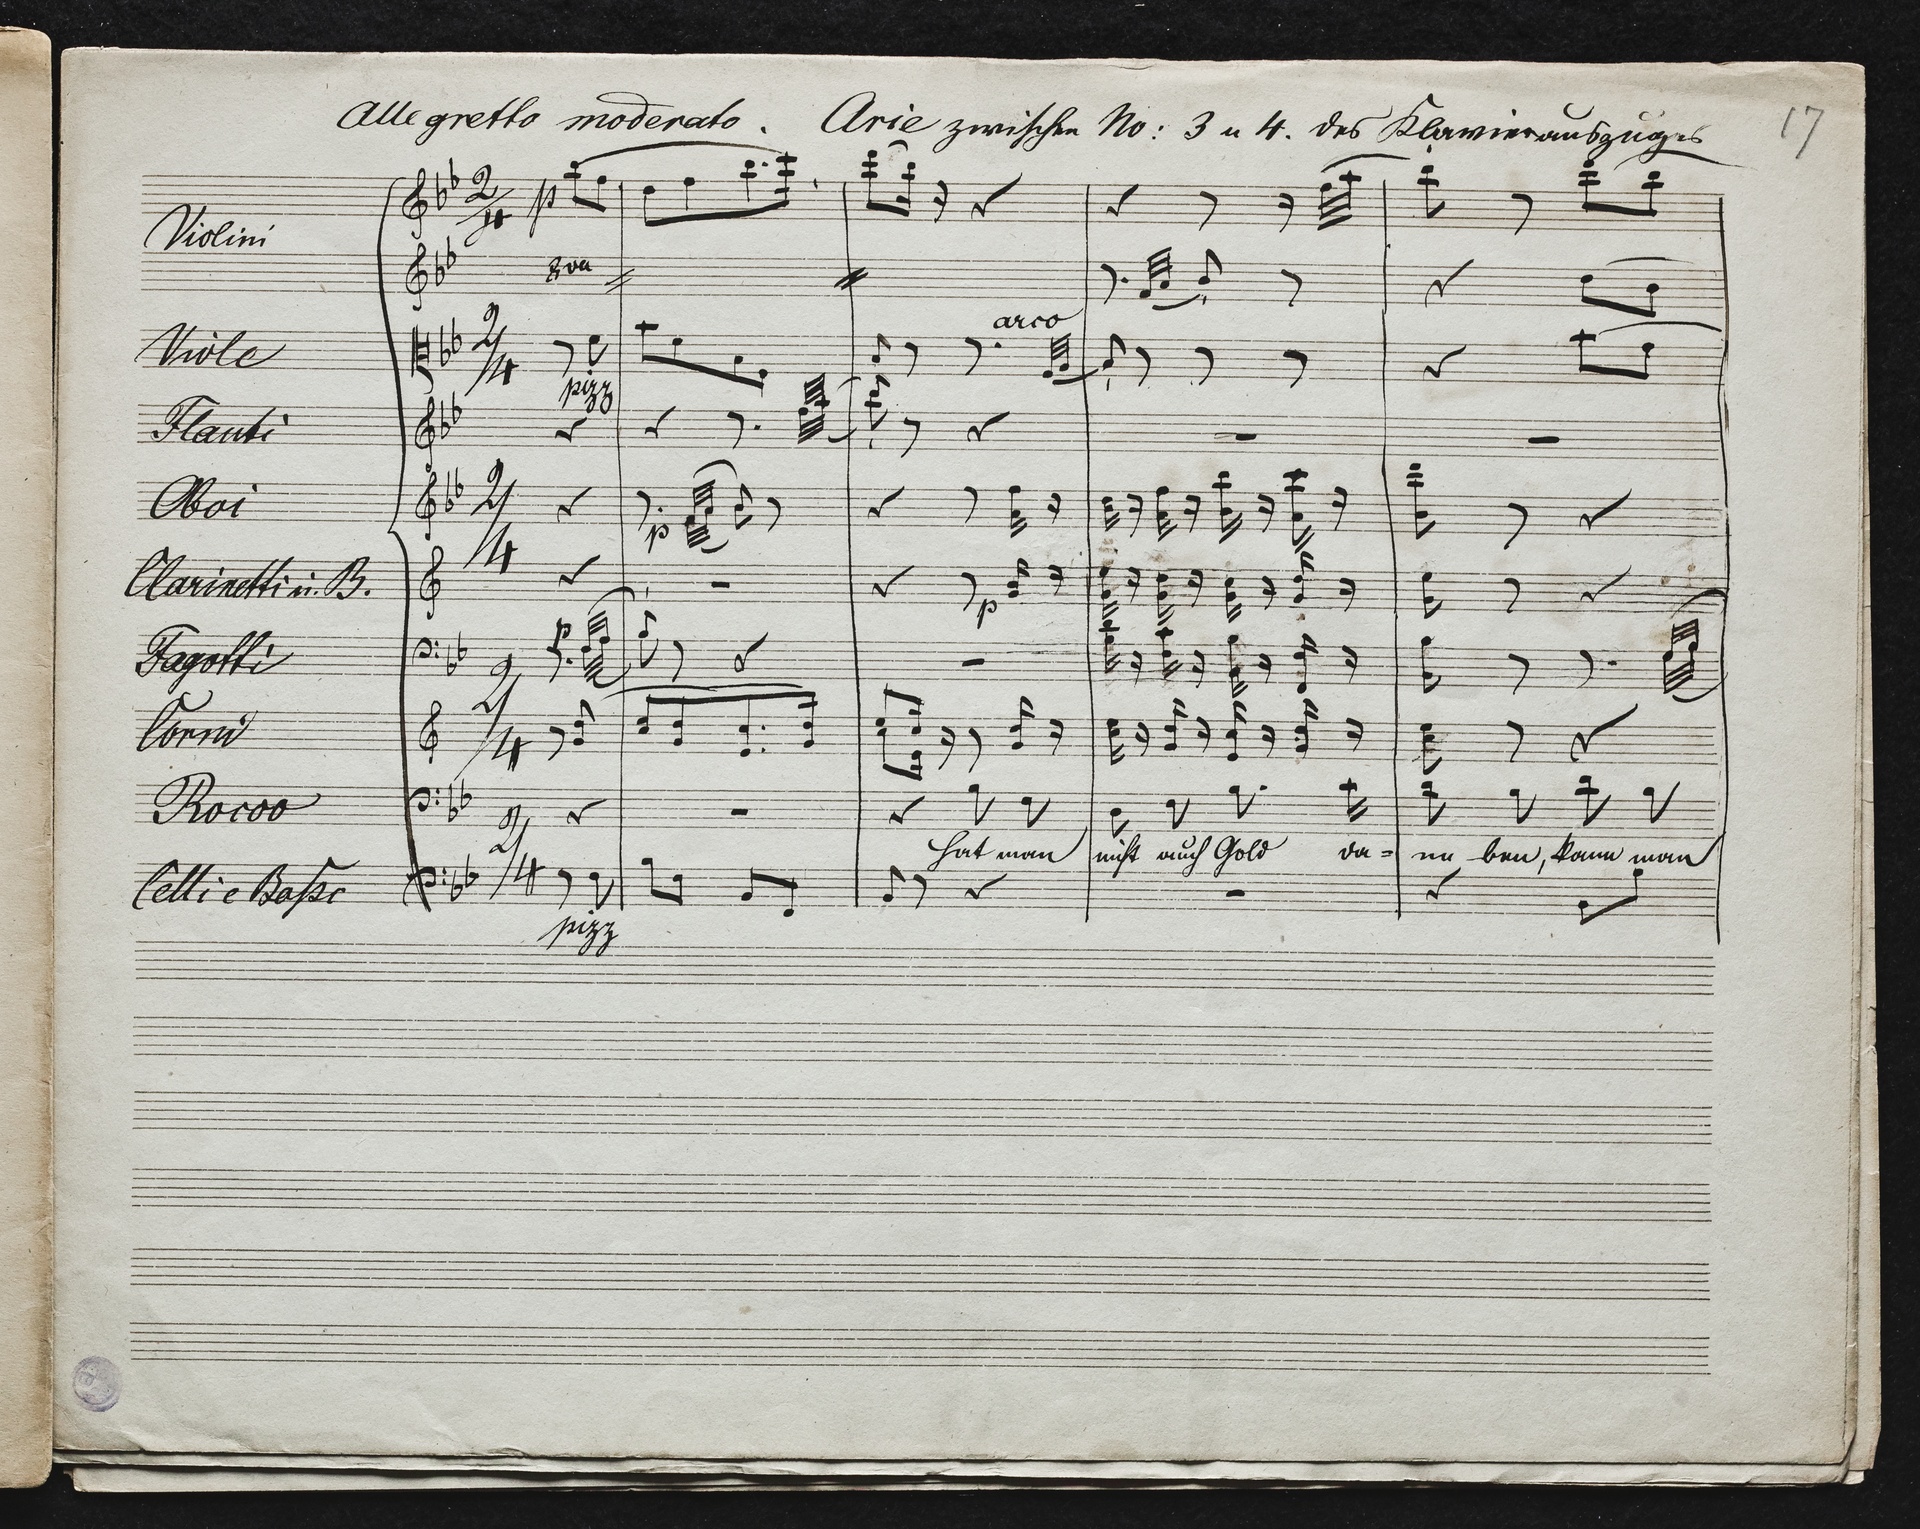 Allegretto moderato. Arie zwischen No: 3 u 4. des Klavierauszuges
17
Violini
2/4
p
8va
Viole
2/4
pizz
arco
Flauti
Oboi
2/4
p
Clarinetti in B.
p
Fagotti
p
Corni
2/4
Rocco
hat man nicht auch Gold da= ne ben, kann man
Celli e Basse
2/4
pizz